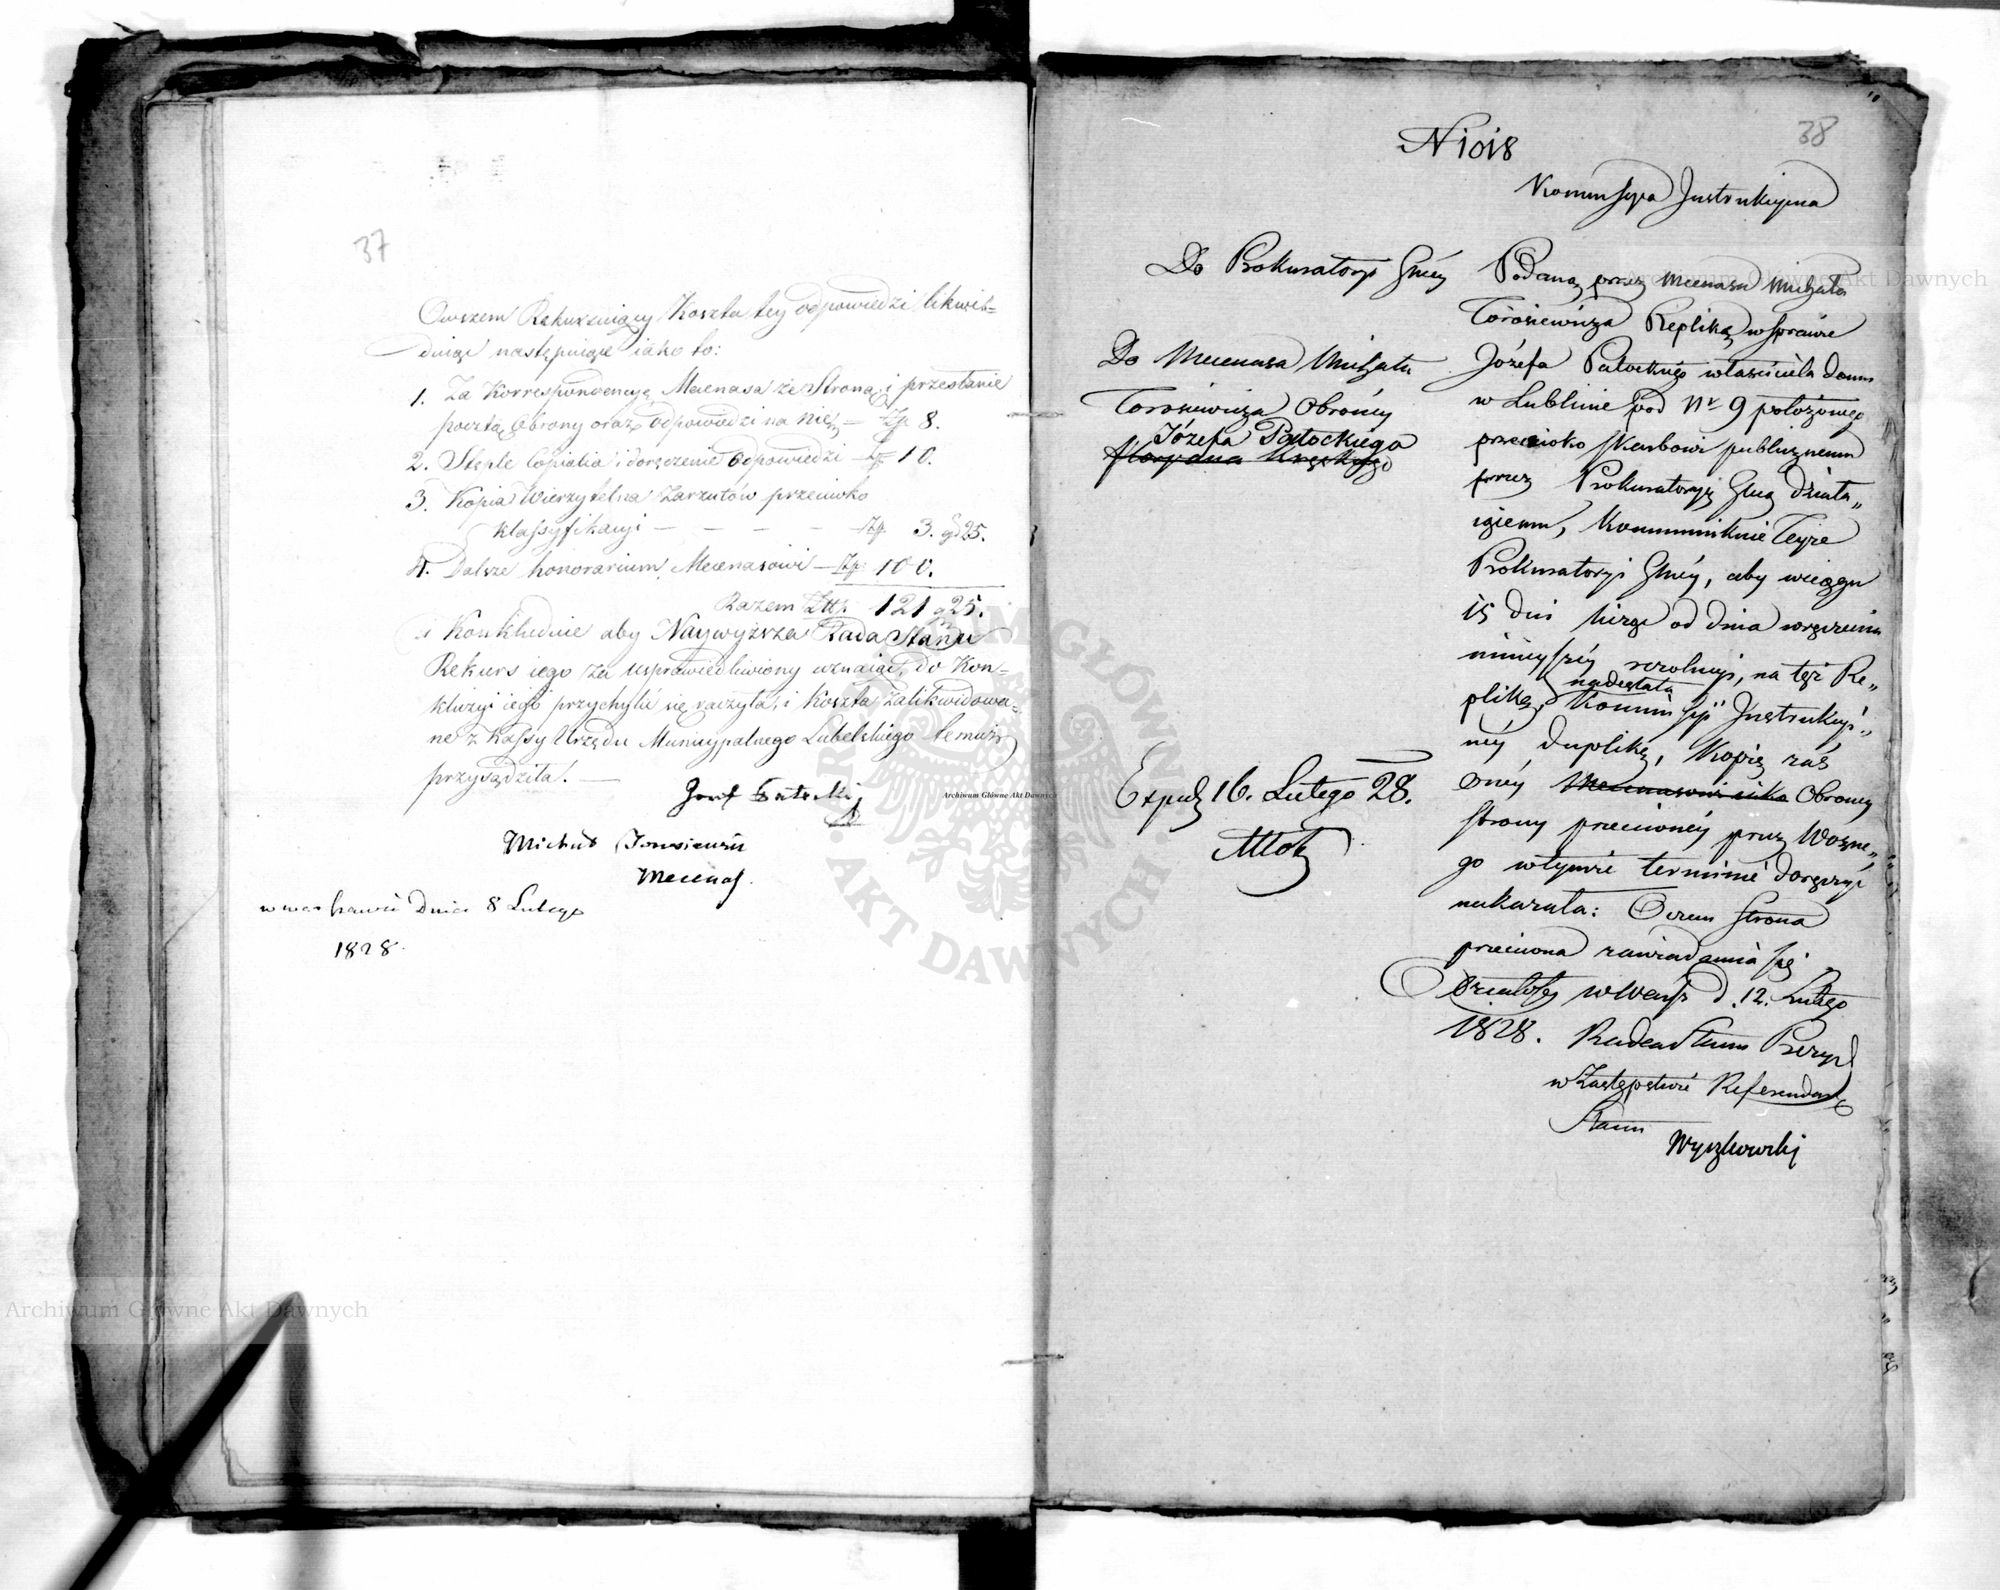 37
Owszem Rekurruiący Koszta tey odpowiedzi likwi-
duiąc następuiące iako to:
1. Za Korrespondencyą Mecenasa ze Stroną i przesłanie
pocztą obrony oraz odpowiedzi na nię — Złp 8.
2. Stęple Copialia i doręczenie Odpowiedzi — Złp 10.
3. Kopia Wierzytelna Zarzutów przeciwko
klassyfikacyi — — — — Złp 3. gr 25.
4. Dalsze honorarium Mecenasowi — Złp 100.
Razem Złp. 121 g 25.
i Konkluduie aby Naywyższa Rada Stanu
Rekurs iego za usprawiedliwiony uznaiąc, do Kon-
kluzyi iego przychylić się raczyła, i Koszta zalikwidowa-
ne z Kassy Urzędu Municypalnego Lubelskiego temuż
przysądziła. —
Józef Patocki
Michał Torosiewicz
Mecenas.
w Warszawie Dnia 8 Lutego
1828.
38
N 1018
Kommissya Instrukcyina
Do Prokuratoryi Gnéy
Do Mecenasa Michała
Torosiewicza Obrońcy
Józefa Patockiego
Exped 16. Lutego 28.
Podaną przez Mecenasa Michała
Torosiewicza Replikę w sprawie
Józefa Patockiego właściciela domu
w Lublinie pod Nr 9 położonego
przeciwko Skarbowi publicznemu
przez Prokuratoryę Gną działa„
iącemu, Kommunikuie Teyże
Prokuratoryi Gnéy, aby w ciągu
15 dni licząc od dnia doręczenia
ninieyszéy rezolucyi, na tęż Re„
plikę, nadesłała Kommissyi Instrukcyi„
néy duplikę, Kopię zaś
onéy Mecenasowi iako Obrońcy
strony przeciwnéy przez Woźne„
go w tymże terminie doręczyć
nakazała: O czem Strona
przeciwna zawiadamia się
Działo się w Warsz d. 12. Lutego
1828. Radca Stanu Prezyd
w Zastępstwie Referendarz
Stanu
Wyczechowski